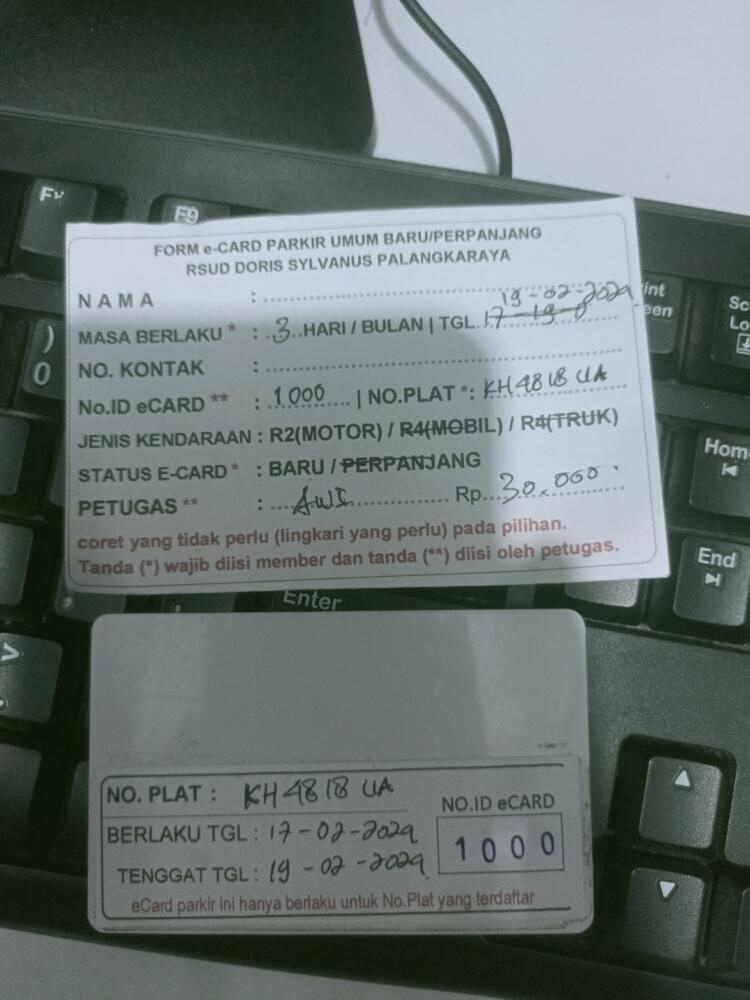 F9
Print
Screen
Sc
Lo
)
0
FORM e-CARD PARKIR UMUM BARU/PERPANJANG
RSUD DORIS SYLVANUS PALANGKARAYA
NAMA :
19-02-2024
MASA BERLAKU * : 3 HARI / BULAN | TGL. 17-19-0
NO. KONTAK :
No.ID eCARD ** : 1000 | NO.PLAT *: KH 4818 UA
JENIS KENDARAAN : R2(MOTOR) / R4(MOBIL) / R4(TRUK)
STATUS E-CARD * : BARU / PERPANJANG
PETUGAS ** : AWI Rp. 30.000
coret yang tidak perlu (lingkari yang perlu) pada pilihan.
Tanda (*) wajib diisi member dan tanda (**) diisi oleh petugas.
Home
End
Enter
>
NO. PLAT : KH 4818 UA
BERLAKU TGL : 17-02-2024
TENGGAT TGL : 19-02-2024
NO.ID eCARD
1000
eCard parkir ini hanya berlaku untuk No.Plat yang terdaftar